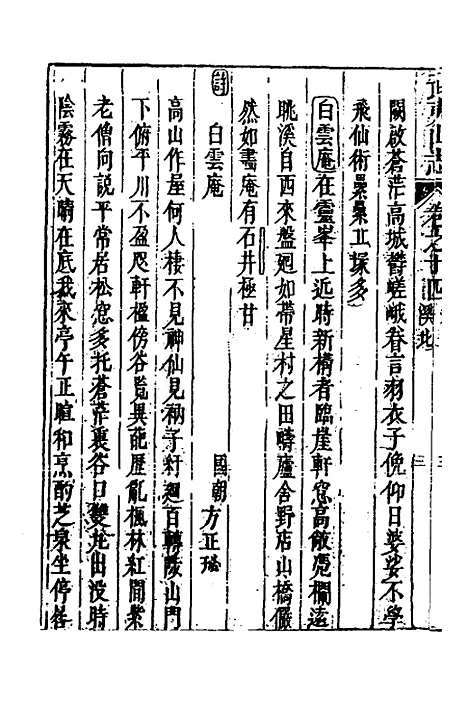 武夷山志 卷之十四 溪北 三
闕啟蒼茫高城鬱嵯峨眷言羽衣子俛仰日婆娑不學
飛仙術纍纍丘塚多
白雲庵在靈峯上近時新構者臨崖軒窓高敞憑欄遠
眺溪自西來盤廻如帶星村之田疇廬舍野店山橋儼
然如畫庵有石井極甘
詩 白雲庵 國朝方正瑗
高山作屋何人棲不見神仙見衲子紆廻百轉陵山門
下俯平川不盈咫軒楹傍谷覧異葩歷亂楓林紅間紫
老僧向説平常居松窓多托蒼茫裏谷口雙龙出没時
陰霧在天晴在底我來亭午正暄和烹酌芝泉坐停晷